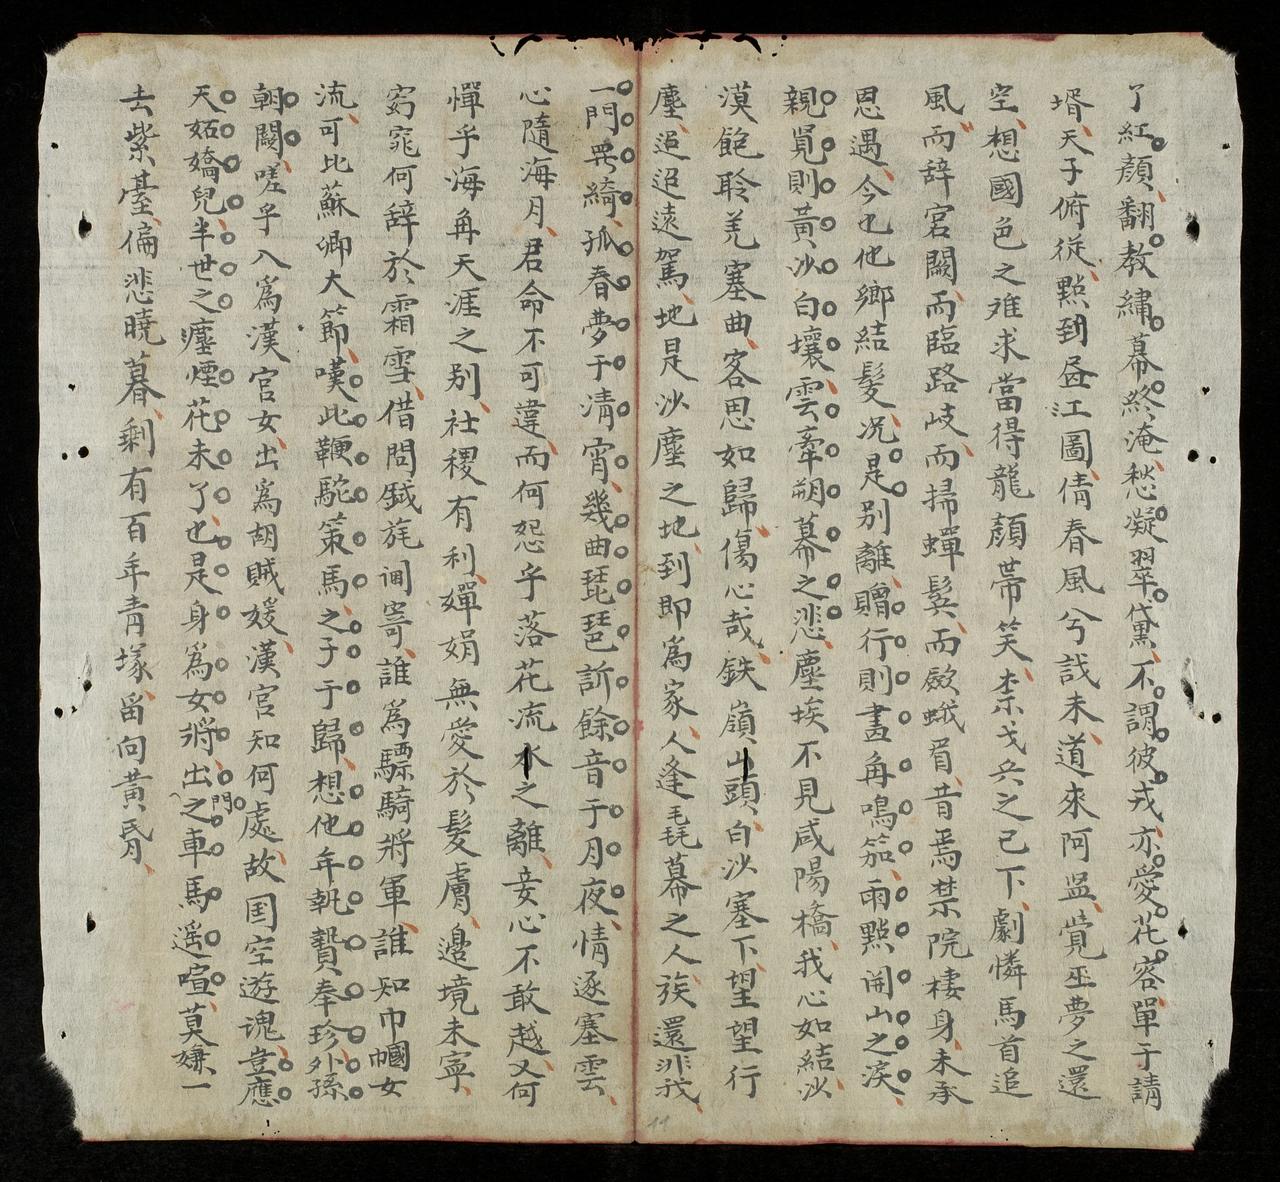 了紅顔翻教繡幕終淹愁凝翠黛不謂彼戎亦愛花容單于請
壻天子俯從㸃到昼江圖倩春風兮試未道來阿監覺巫夢之還
空想國色之难求當得龍顔帶笑柰戈兵之已下劇憐馬首追
風而辞宮闕而臨路岐而掃蟬鬂而歛蛾眉昔焉禁院棲身未承
恩遇今也他鄉結髮况是别離贈行則畫角鳴笳雨㸃開山之淚
親覓則黄沙白壤雲牽朔幕之悲塵埃不見咸陽橋我心如結沙
漠飽聆羌塞曲客思如歸傷心哉鉄嶺山頭白沙塞下望望行
塵迢迢遠駕地是沙塵之地到即爲家人逢毳幕之人族還非我
一門羅綺孤春夢于清宵幾曲琵琶訴餘音于月夜情逐塞雲
心隨海月君命不可違而何怨乎落花流水之離妾心不敢越又何
憚乎海角天涯之别社稷有利嬋娟無愛於髮膚邊境未寧
窈窕何辞於霜雪借問鉞旄阃寄誰爲驃騎將軍誰知巾幗女
流可比蘇卿大節嘆此鞭駝策馬之子于歸想他年執贄奉珍外孫
朝闕嗟乎入爲漢宫女出爲胡賊媛漢宫知何處故国空遊魂豈應
天妬嬌兒半世之塵煙花未了也是身爲女將出門之車馬遥喧莫嫌一
去紫臺偏悲曉暮剩有百年青塚留向黄昏